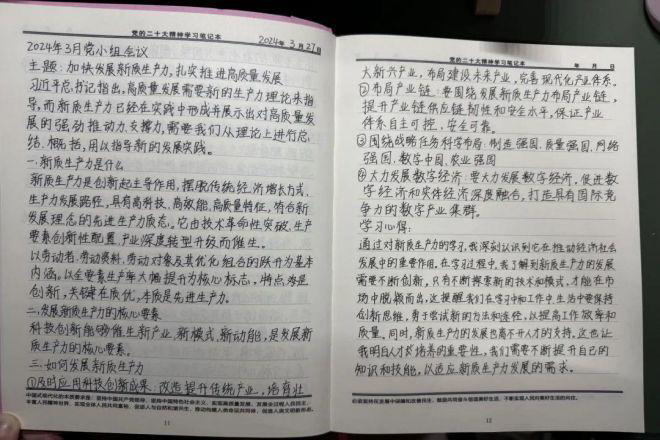 党的二十大精神学习笔记本
2024年 3月27日
2024年3月党小组会议
主题：加快发展新质生产力，扎实推进高质量发展
习近平总书记指出，高质量发展需要新的生产力理论来指
导，而新质生产力已经在实践中形成并展示出对高质量发
展的强劲推动力、支撑力，需要我们从理论上进行总
结、概括，用以指导新的发展实践。
一、新质生产力是什么
新质生产力是创新起主导作用，摆脱传统经济增长方式、
生产力发展路径，具有高科技、高效能、高质量特征，符合新
发展理念的先进生产力质态。它由技术革命性突破、生产
要素创新性配置、产业深度转型升级而催生。
以劳动者、劳动资料、劳动对象及其优化组合的跃升为基本
内涵，以全要素生产率大幅提升为核心标志，特点是
创新，关键在质优，本质是先进生产力。
二、发展新质生产力的核心要素
科技创新能够催生新产业、新模式、新动能，是发展新
质生产力的核心要素。
三、如何发展新质生产力
①及时应用科技创新成果：改造提升传统产业，培育壮
中国式现代化的本质要求是：坚持中国共产党领导，坚持中国特色社会主义，实现高质量发展，发展全过程人民民主，
丰富人民精神世界，实现全体人民共同富裕，促进人与自然和谐共生，推动构建人类命运共同体，创造人类文明新形态。
11
党的二十大精神学习笔记本
年 月 日
大新兴产业，布局建设未来产业，完善现代化产业体系。
②布局产业链：要围绕发展新质生产力布局产业链，
提升产业链供应链韧性和安全水平，保证产业
体系自主可控，安全可靠。
③围绕战略任务科学布局：制造强国、质量强国、网络
强国、数字中国、农业强国
④大力发展数字经济：要大力发展数字经济，促进数
字经济和实体经济深度融合，打造具有国际竞
争力的数字产业集群。
学习心得：
通过对新质生产力的学习，我深刻认识到它在推动经济社会
发展中的重要作用。在学习过程中，我了解到新质生产力的发展
需要不断创新，只有不断探索新的技术和模式，才能在市
场中脱颖而出，这提醒我们在学习中和工作中生活中要保持
创新思维，勇于尝试新的方法和途径，以提高工作效率和
质量。同时，新质生产力的发展也离不开人才的支持。这也让
我明白人才培养的重要性，我们需要不断提升自己的
知识和技能，以适应新质生产力发展的需求。
必须坚持在发展中保障和改善民生，鼓励共同奋斗创造美好生活，不断实现人民对美好生活的向往。
12